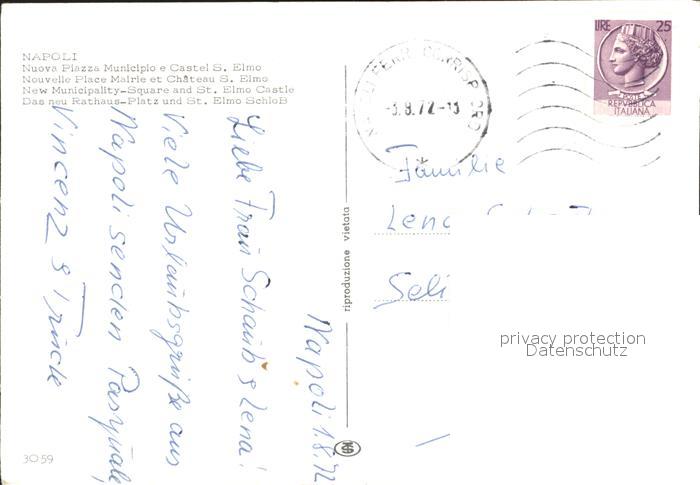 NAPOLI
Nuova Piazza Municipio e Castel S. Elmo
Nouvelle Place Mairie et Château S. Elmo
New Municipality-Square and St. Elmo Castle
Das neu Rathaus-Platz und St. Elmo Schloß
LIRE 25
POSTE
REPVBBLICA
ITALIANA
-3.8.72-13
Napoli 1.8.72
Liebe Frau Schaub & Lena!
Viele Urlaubsgrüße aus
Napoli senden Pasquale,
Vincenz & Trude
riproduzione vietata
Familie
Lena
Seli
privacy protection
Datenschutz
3059